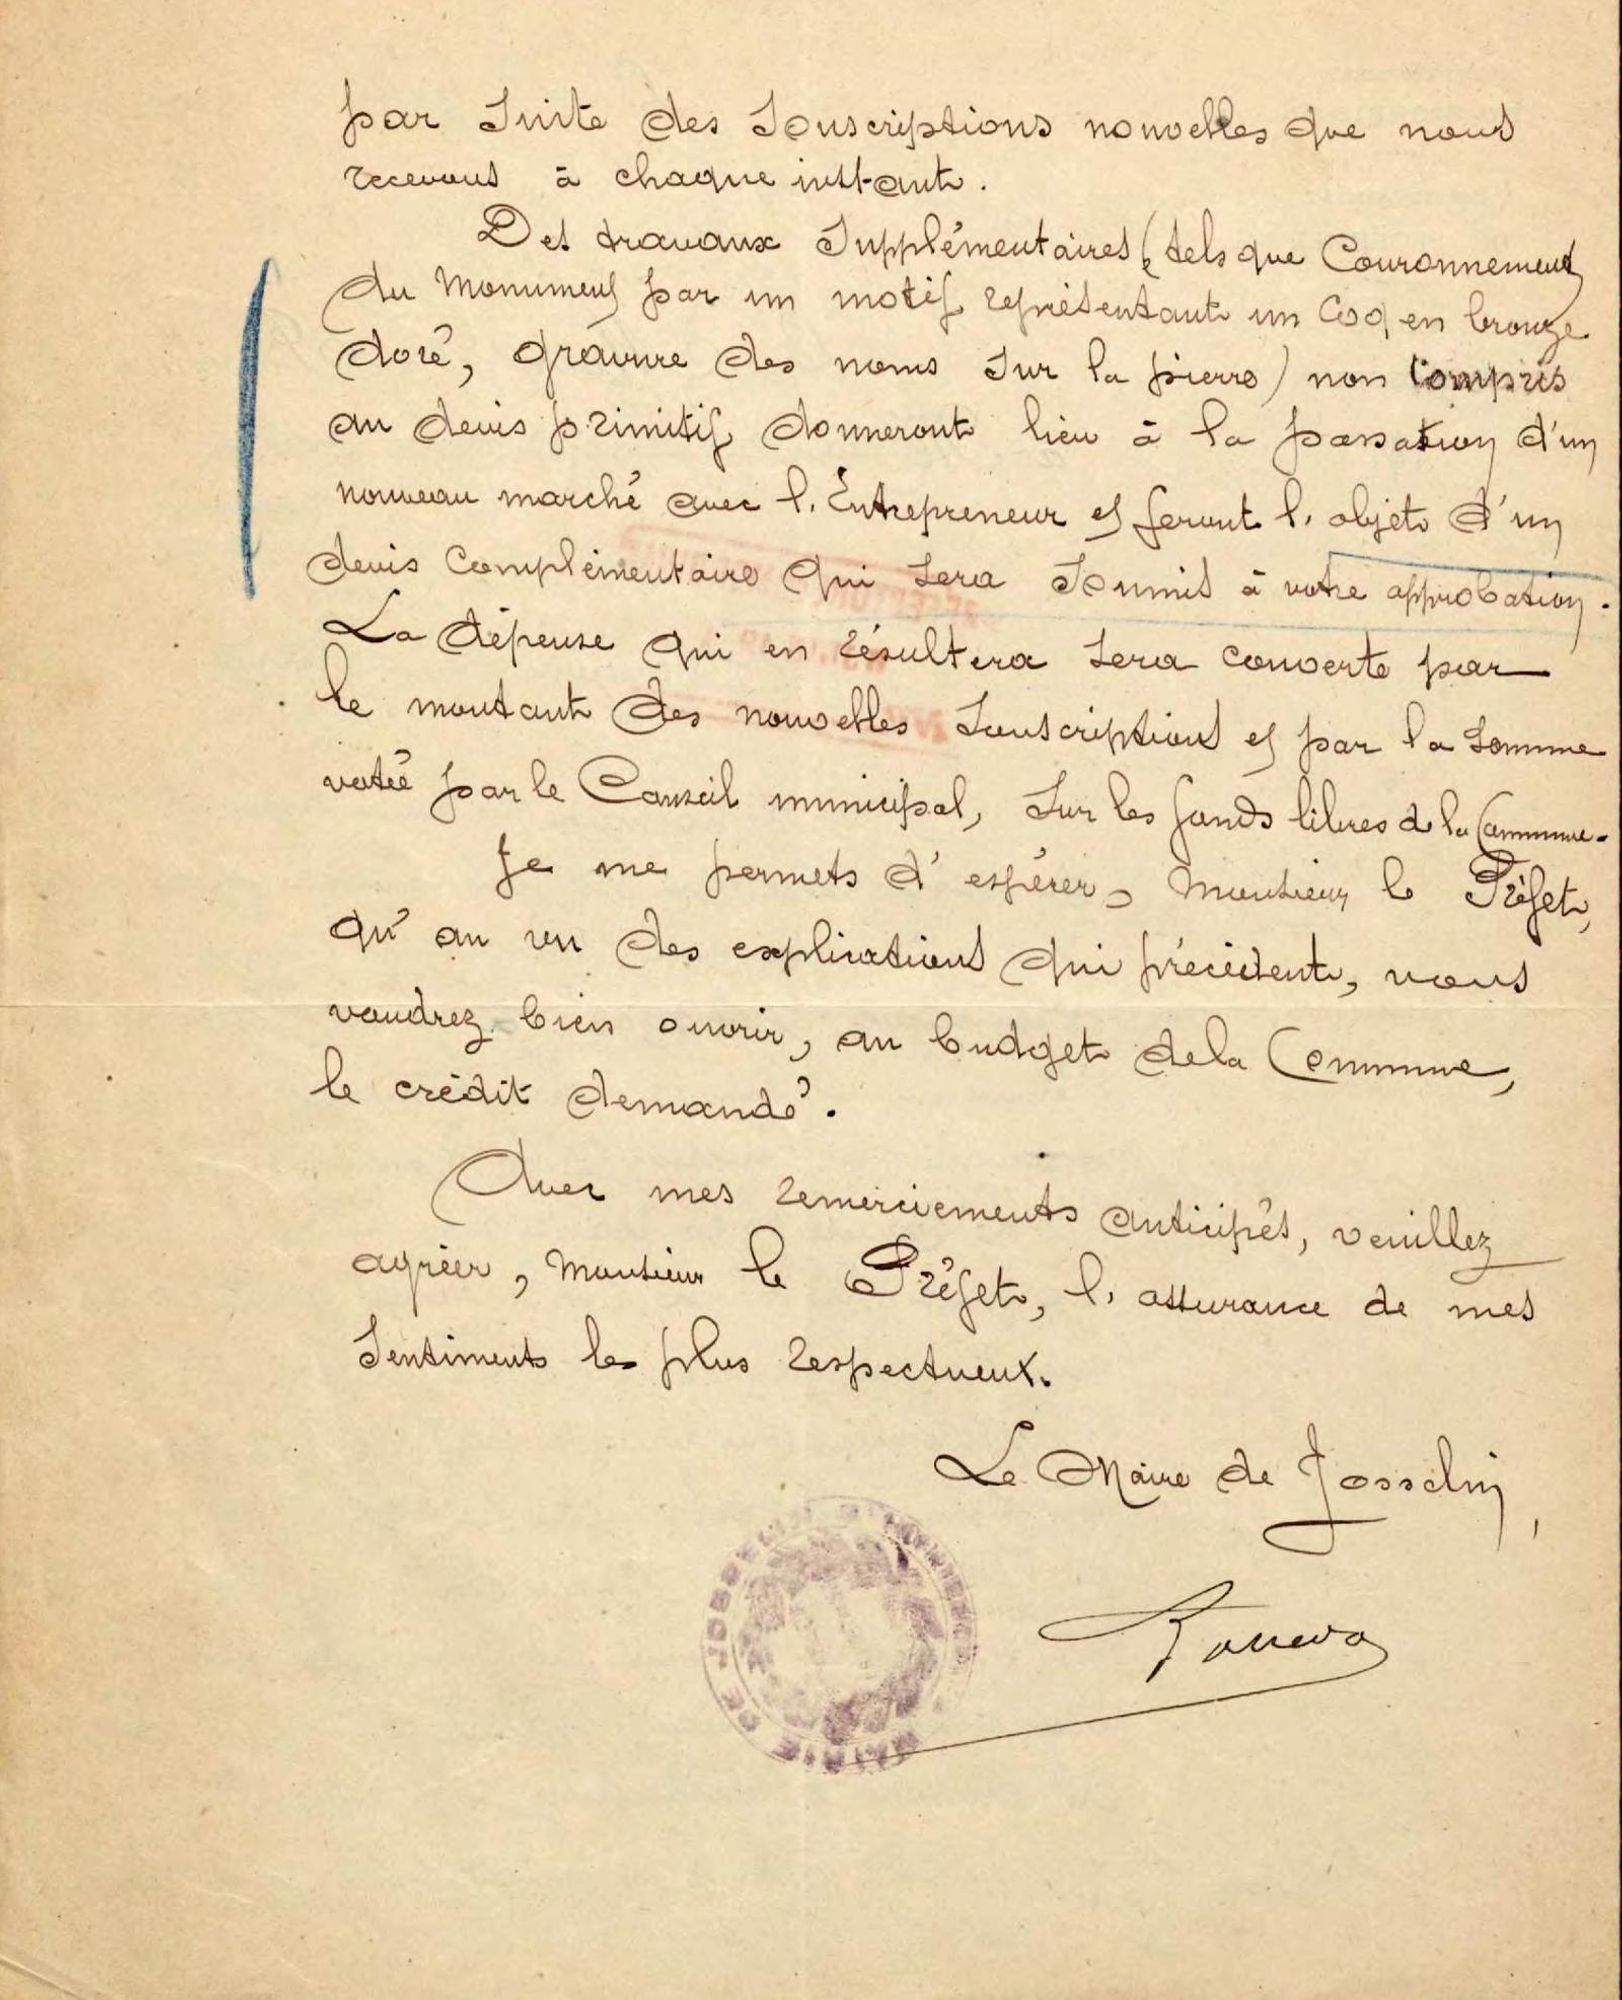 par suite des Souscriptions nouvelles que nous
recevons à chaque instant.
Des travaux Supplémentaires (tels que Couronnement
du Monument par un motif représentant un Coq en bronze
doré, gravure des noms sur la pierre) non compris
au devis primitif donneront lieu à la passation d'un
nouveau marché avec l'Entrepreneur et feront l'objet d'un
devis Complémentaire qui sera soumis à votre approbation.
La dépense qui en résultera sera couverte par
le montant des nouvelles Souscriptions et par la somme
votée par le Conseil municipal, sur les fonds libres de la Commune.
Je me permets d'espérer, Monsieur le Préfet,
qu'au vu des explications qui précèdent, vous
voudrez bien ouvrir, au budget de la Commune,
le crédit demandé.
Avec mes remerciements anticipés, veuillez
agréer, Monsieur le Préfet, l'assurance de mes
Sentiments les plus respectueux.
Le Maire de Josselin,
MAIRIE DE JOSSELIN